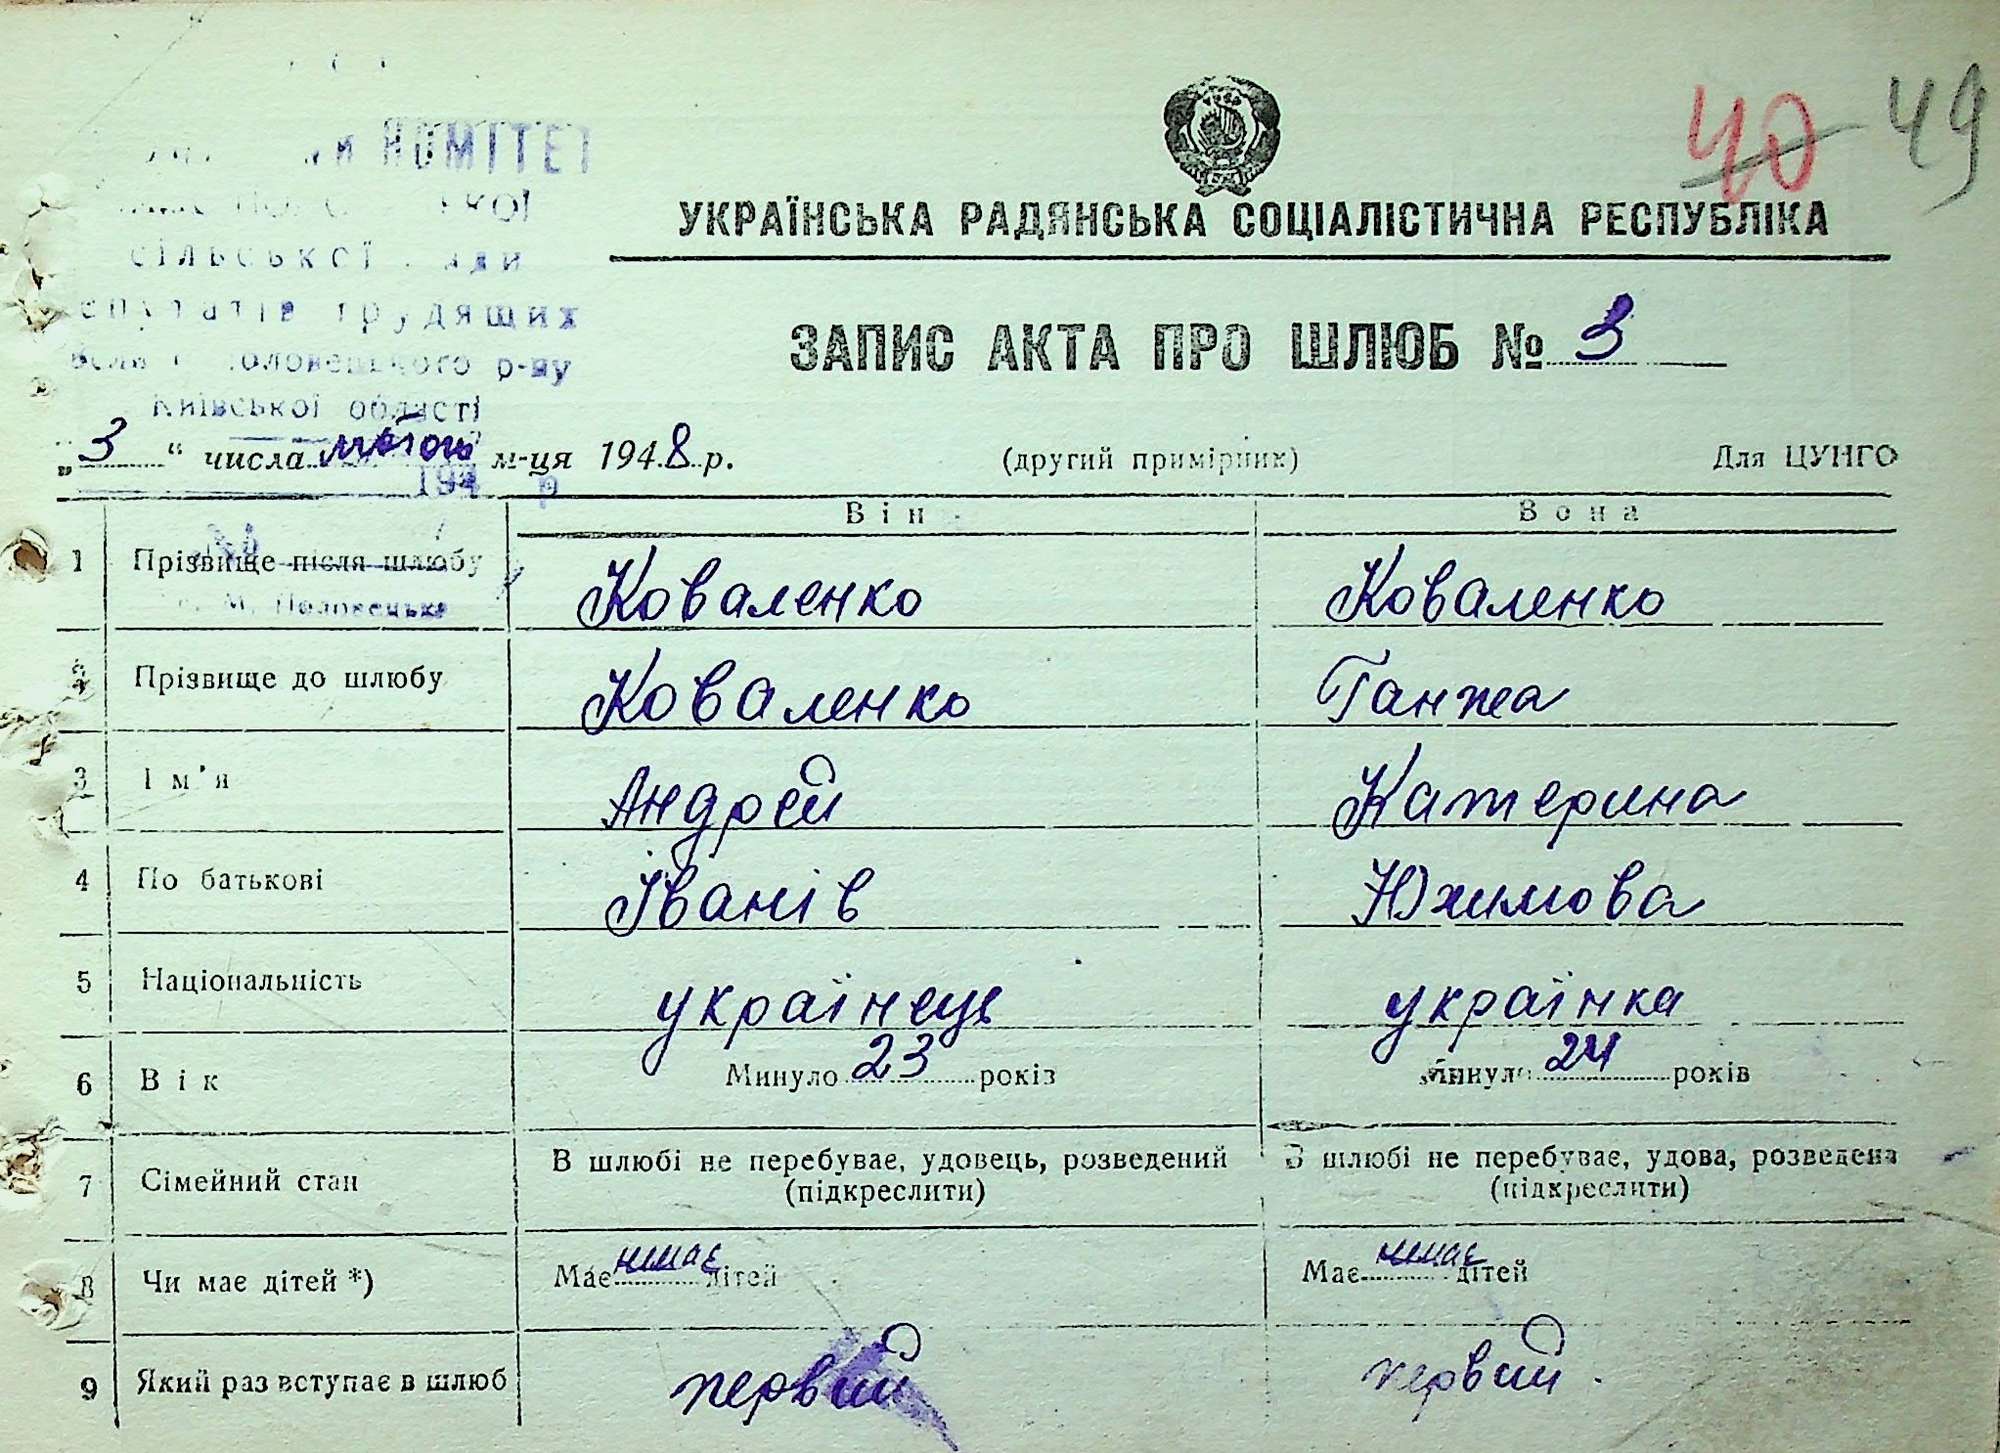 40 49
КОМІТЕТ
УКРАЇНСЬКА РАДЯНСЬКА СОЦІАЛІСТИЧНА РЕСПУБЛІКА
сільської
трудящих
р-ну
Київської області
ЗАПИС АКТА ПРО ШЛЮБ № 3
„3“ числа м-ця 1948 р. (другий примірник) Для ЦУНГО
194 р
Він Вона
1 Прізвище після шлюбу Коваленко Коваленко
с. М. Половецьке
2 Прізвище до шлюбу Коваленко Ганжа
3 Ім'я Андрей Катерина
4 По батькові Іванів Юхимова
5 Національність українець українка
6 Вік Минуло 23 років Минуло 24 років
7 Сімейний стан В шлюбі не перебуває, удовець, розведений В шлюбі не перебуває, удова, розведена
(підкреслити) (підкреслити)
8 Чи має дітей *) Має немає дітей Має немає дітей
9 Який раз вступає в шлюб первий первий